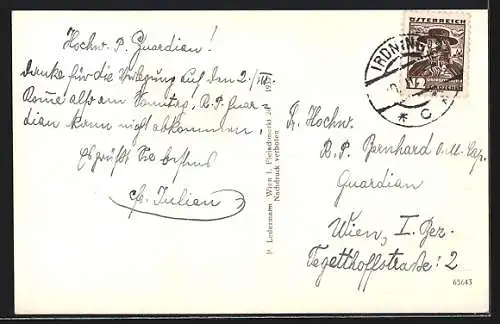 Hochw. P. Guardian!
Danke für die Verlegung auf den 2./III.
Komme also am Samstag, R. P. Guar-
dian kann nicht abkommen.
Es grüßt Sie bestens
fr. Julian
P. Ledermann Wien I. Fleischmarkt 20 193
Nachdruck verboten
ÖSTERREICH
IRDNING
* C *
Sr. Hochw.
R. P. Bernhard O. M. Cap.
Guardian
Wien, I. Bez.
Tegetthoffstraße: 2
65643